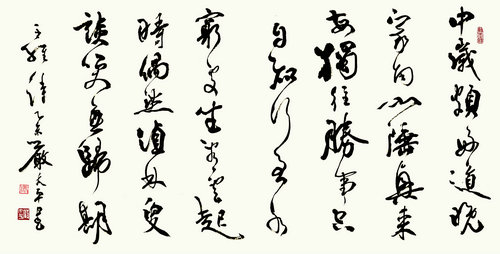 中歲頗好道晚
家南山陲興來
每獨往勝事空
自知行到水
窮處坐看雲起
時偶然值林叟
談笑無歸期
王維詩 嚴 書